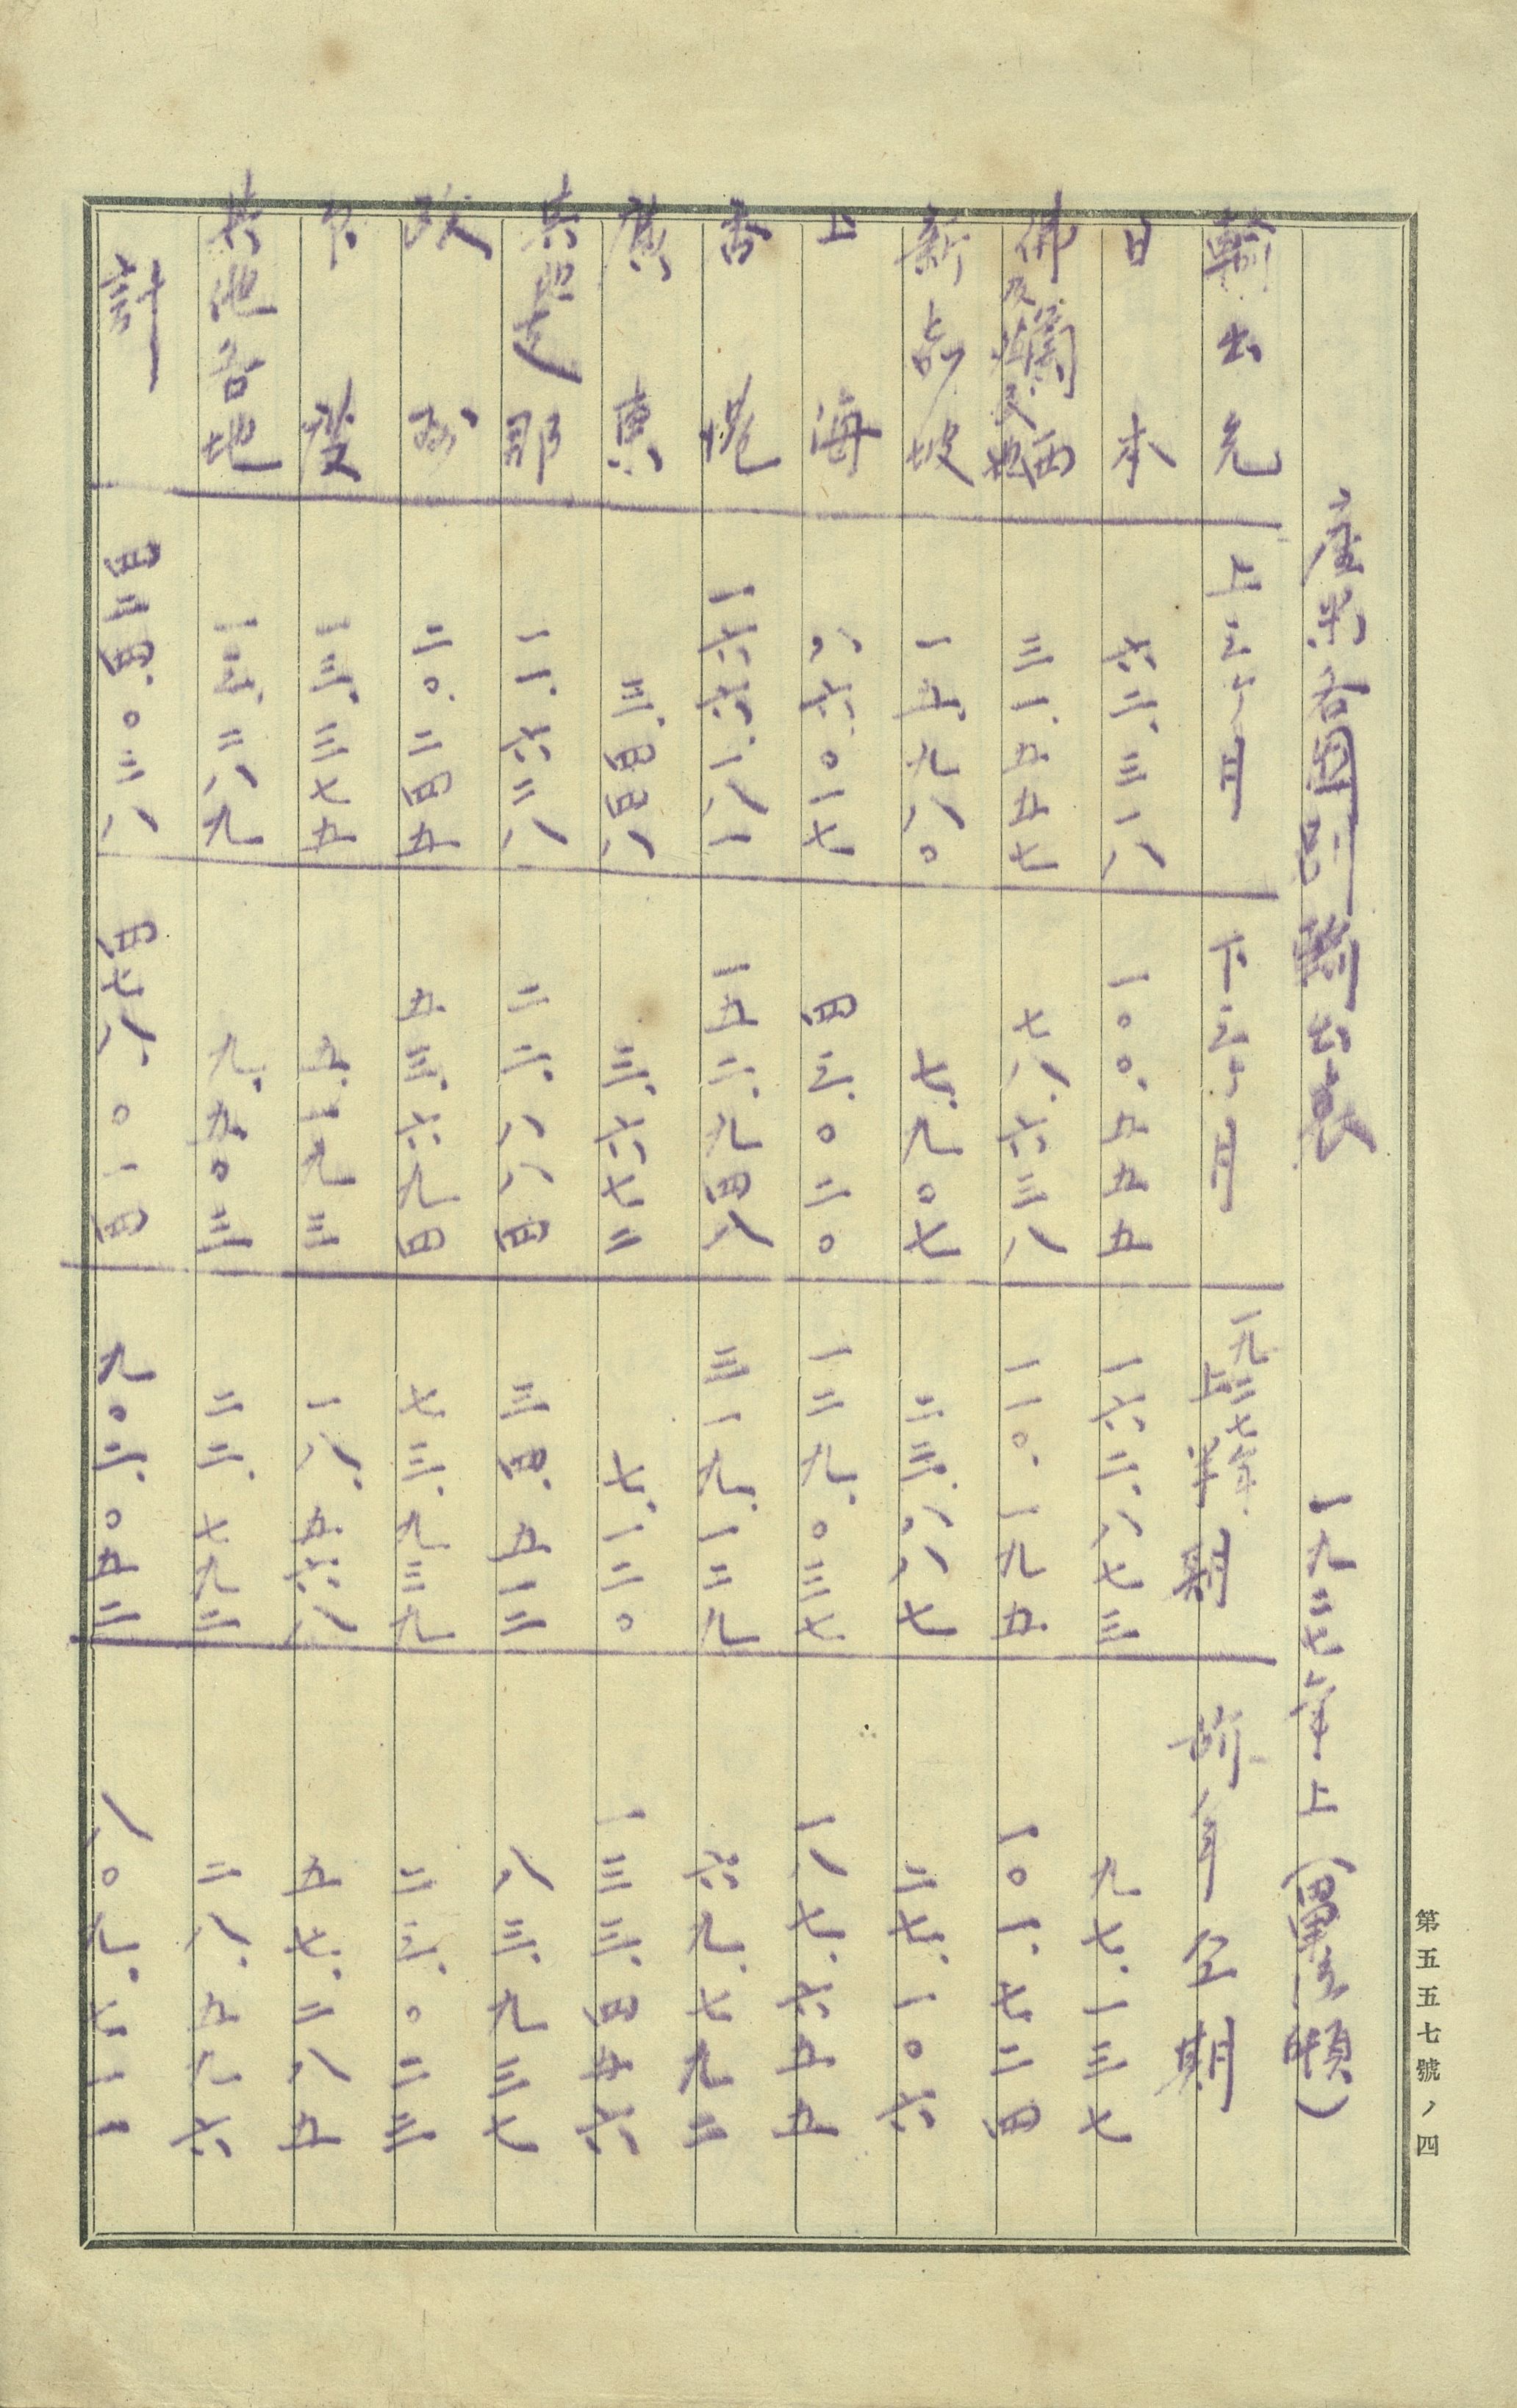 第五五七號ノ四
産米各国別輸出表 一九二七年上(單位噸)
輸出先 上三ヶ月 下三ヶ月 一九二七年上半期 昨年全期
日本 六二.三一八 一〇〇.五五五 一六二.八七三 九七.一三七
佛蘭西及殖民地 三一.五五七 七八.六三八 一一〇.一九五 一〇一.七二四
新嘉坡 一五.九八〇 七.九〇七 二三.八八七 二七.一〇六
上海 八六.〇一七 四三.〇二〇 一二九.〇三七 一八七.六五五
香港 一六六.一八一 一五二.九四八 三一九.一二九 六九.七九二
廣東 三.四四八 三.六七二 七.一二〇 一三三.四五六
其他支那 一一.六二八 二二.八八四 三四.五一二 八三.九三七
欧洲 二〇.二四五 五三.六九四 七三.九三九 二三.〇二三
一三.三七五 五.一九三 一八.五六八 五七.二八五
其他各地 一三.二八九 九.五〇三 二二.七九二 二八.五九六
計 四二四.〇三八 四七八.〇一四 九〇二.〇五二 八〇九.七一一